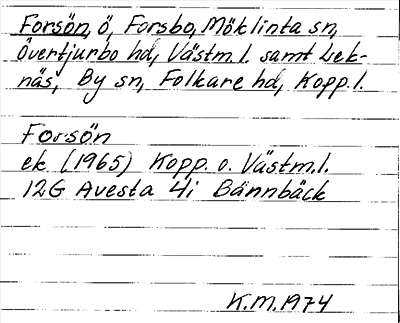 Forsön, ö, Forsbo, Möklinta sn,
Övertjurbo hd, Västm.l. samt Lek-
näs, By sn, Folkare hd, Kopp.l.
Forsön
ek (1965) Kopp. o. Västm.l.
12G Avesta 4i Bännbäck
K.M. 1974